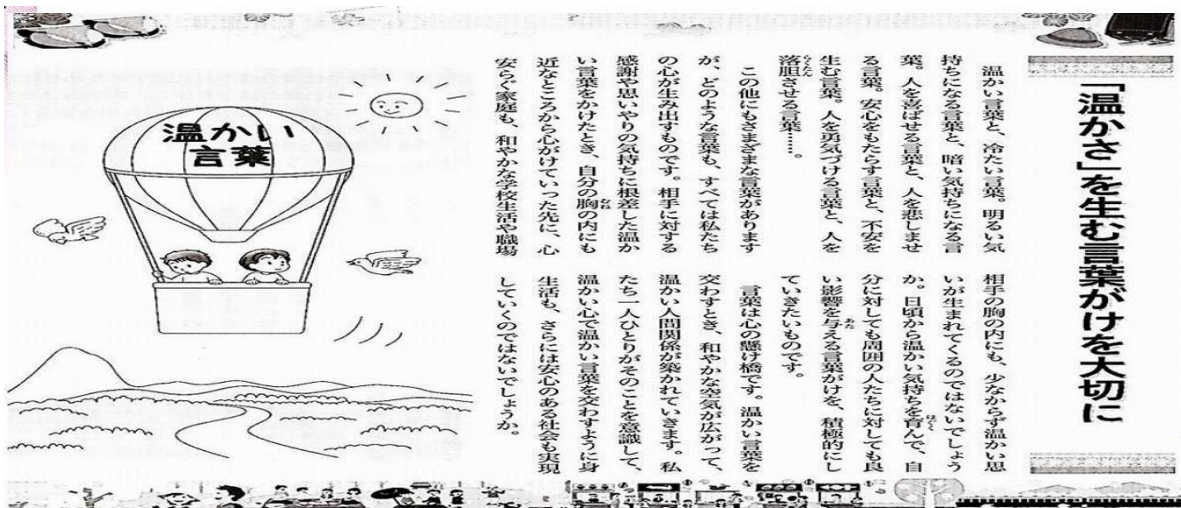 「温かさ」を生む言葉がけを大切に
温かい言葉と、冷たい言葉。明るい気
持ちになる言葉と、暗い気持ちになる言
葉。人を喜ばせる言葉と、人を悲しませ
る言葉。安心をもたらす言葉と、不安を
生む言葉。人を勇気づける言葉と、人を
落胆させる言葉……。
この他にもさまざまな言葉があります
が、どのような言葉も、すべては私たち
の心が生み出すものです。相手に対する
感謝や思いやりの気持ちに根差した温か
い言葉をかけたとき、自分の胸の内にも
相手の胸の内にも、少なからず温かい思
いが生まれてくるのではないでしょう
か。日頃から温かい気持ちを育んで、自
分に対しても周囲の人たちに対しても良
い影響を与える言葉がけを、積極的にし
ていきたいものです。
言葉は心の懸け橋です。温かい言葉を
交わすとき、和やかな空気が広がって、
温かい人間関係が築かれていきます。私
たち一人ひとりがそのことを意識して、
温かい心で温かい言葉を交わすように身
近なところから心がけていった先に、心
安らぐ家庭も、和やかな学校生活や職場
生活も、さらには安心のある社会も実現
していくのではないでしょうか。
温かい
言葉